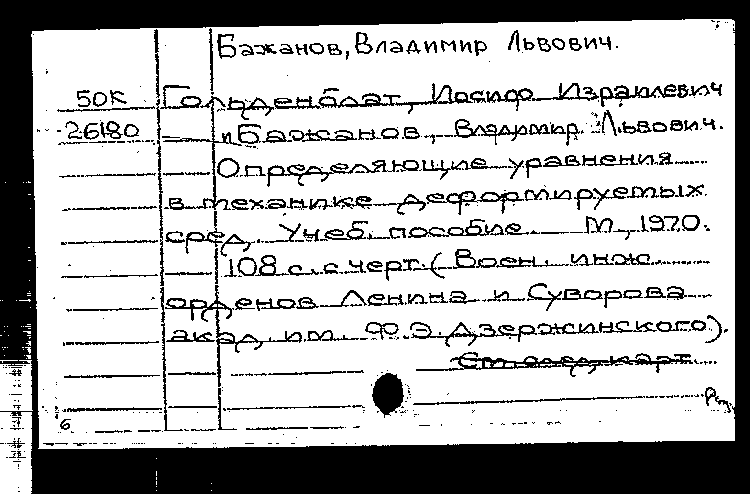 Бажанов, Владимир Львович.
50К Гольденблат, Иосиф Израилевич
26180 и Бажанов, Владимир Львович.
Определяющие уравнения
в механике деформируемых
сред. Учеб. пособие. М., 1970.
108 с. с черт. (Воен. инж.
орденов Ленина и Суворова
акад. им. Ф.Э. Дзержинского).
См. след. карт.
6